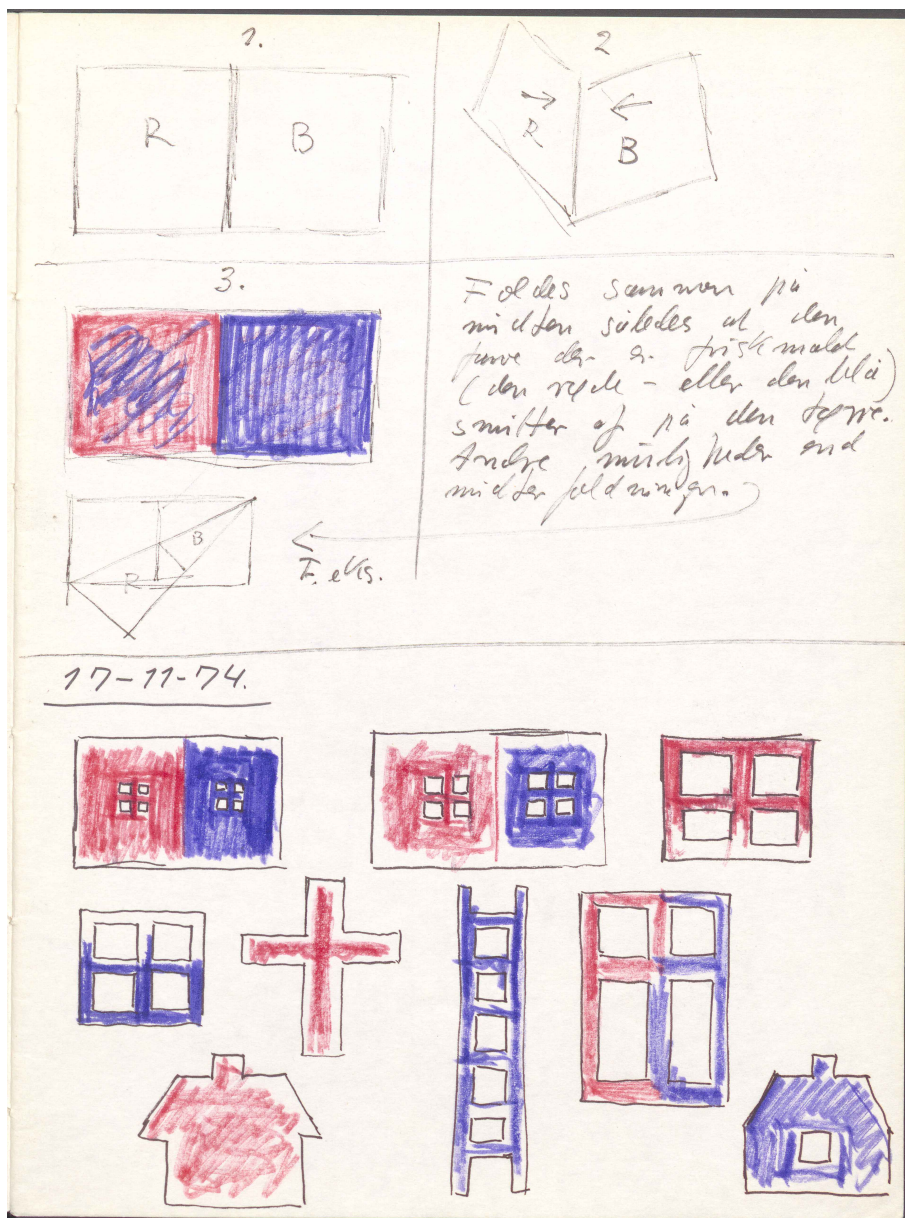 1.
R B
2
R
B
3.
Foldes sammen på
midten således at den
farve der er friskmalet
(den røde - eller den blå)
smitter af på den tørre.
Andre muligheder end
midterfoldningen.
B
R
F. eks.
17-11-74.